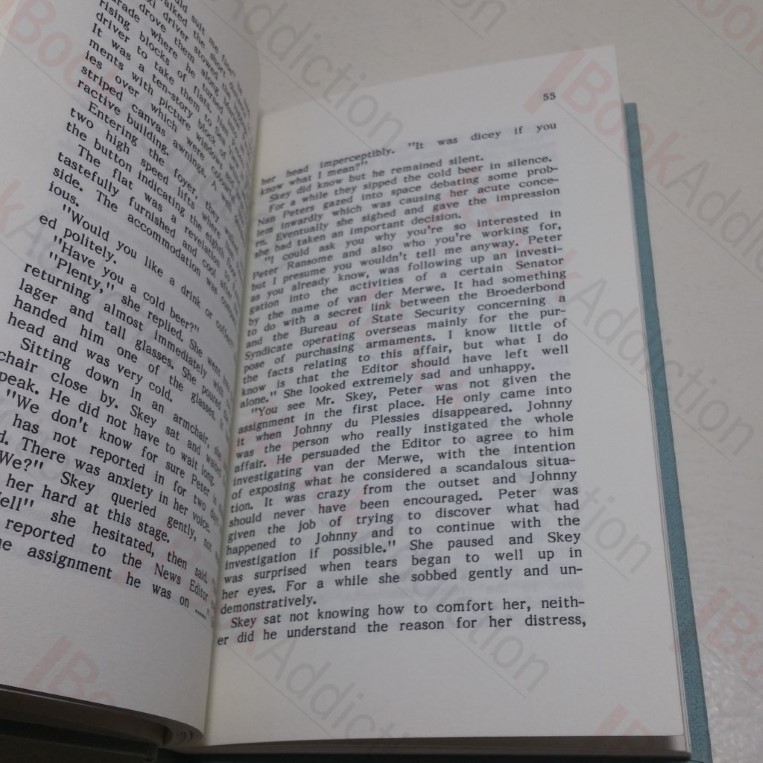 ould suit me fine."
alked the short
xi driver stowed
drove them along
arade where he turned
blocks of flats
driver to take them to
It was a ten-story block of
ments with picture windows
ies over which were colour
striped canvas awnings. A
ractive building.
Entering the foyer they
two high speed lifts where
the button indicating the eighth
The flat was a revelation
tastefully furnished and cool after
side. The accommodation was
ious.
"Would you like a drink or coffee
ed politely.
"Have you a cold beer?"
"Plenty," she replied. She went
returning almost immediately with
lager and tall glasses. She poured
handed him one of the glasses.
head and was very cold.
Sitting down in an armchair, she
chair close by. Skey sat and waited
peak. He did not have to wait long.
"We don't know for sure Peter
has not reported in for two days
d. There was anxiety in her voice.
We?" Skey queried gently, not
her hard at this stage.
ell" she hesitated, then said
reported to the News Editor
e assignment he was on
55
her head imperceptibly. "It was dicey if you
know what I mean?"
Skey did know but he remained silent.
For a while they sipped the cold beer in silence.
Nan Peters gazed into space debating some prob-
lem inwardly which was causing her acute conce-
rn. Eventually she sighed and gave the impression
she had taken an important decision.
"I could ask you why you're so interested in
Peter Ransome and also who you're working for,
but I presume you wouldn't tell me anyway. Peter
as you already know, was following up an investi-
gation into the activities of a certain Senator
by the name of van der Merwe. It had something
to do with a secret link between the Broederbond
and the Bureau of State Security concerning a
Syndicate operating overseas mainly for the pur-
pose of purchasing armaments. I know little of
the facts relating to this affair, but what I do
know is that the Editor should have left well
alone." She looked extremely sad and unhappy.
"You see Mr. Skey, Peter was not given the
assignment in the first place. He only came into
it when Johnny du Plessies disappeared. Johnny
was the person who really instigated the whole
affair. He persuaded the Editor to agree to him
investigating van der Merwe, with the intention
of exposing what he considered a scandalous situa-
tion. It was crazy from the outset and Johnny
should never have been encouraged. Peter was
given the job of trying to discover what had
happened to Johnny and to continue with the
investigation if possible." She paused and Skey
was surprised when tears began to well up in
her eyes. For a while she sobbed gently and un-
demonstratively.
Skey sat not knowing how to comfort her, neith-
er did he understand the reason for her distress,
BookAddiction